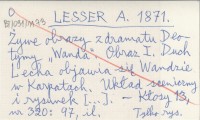 LESSER A. 1871.
Żywe obrazy z dramatu Deo-
tymy "Wanda". Obraz I. Duch
Lecha objawia się Wandzie
w Karpatach. Układ sceniczny
i rysunek [...]. - Kłosy 13,
nr 320: 97, il. Tylko rys.